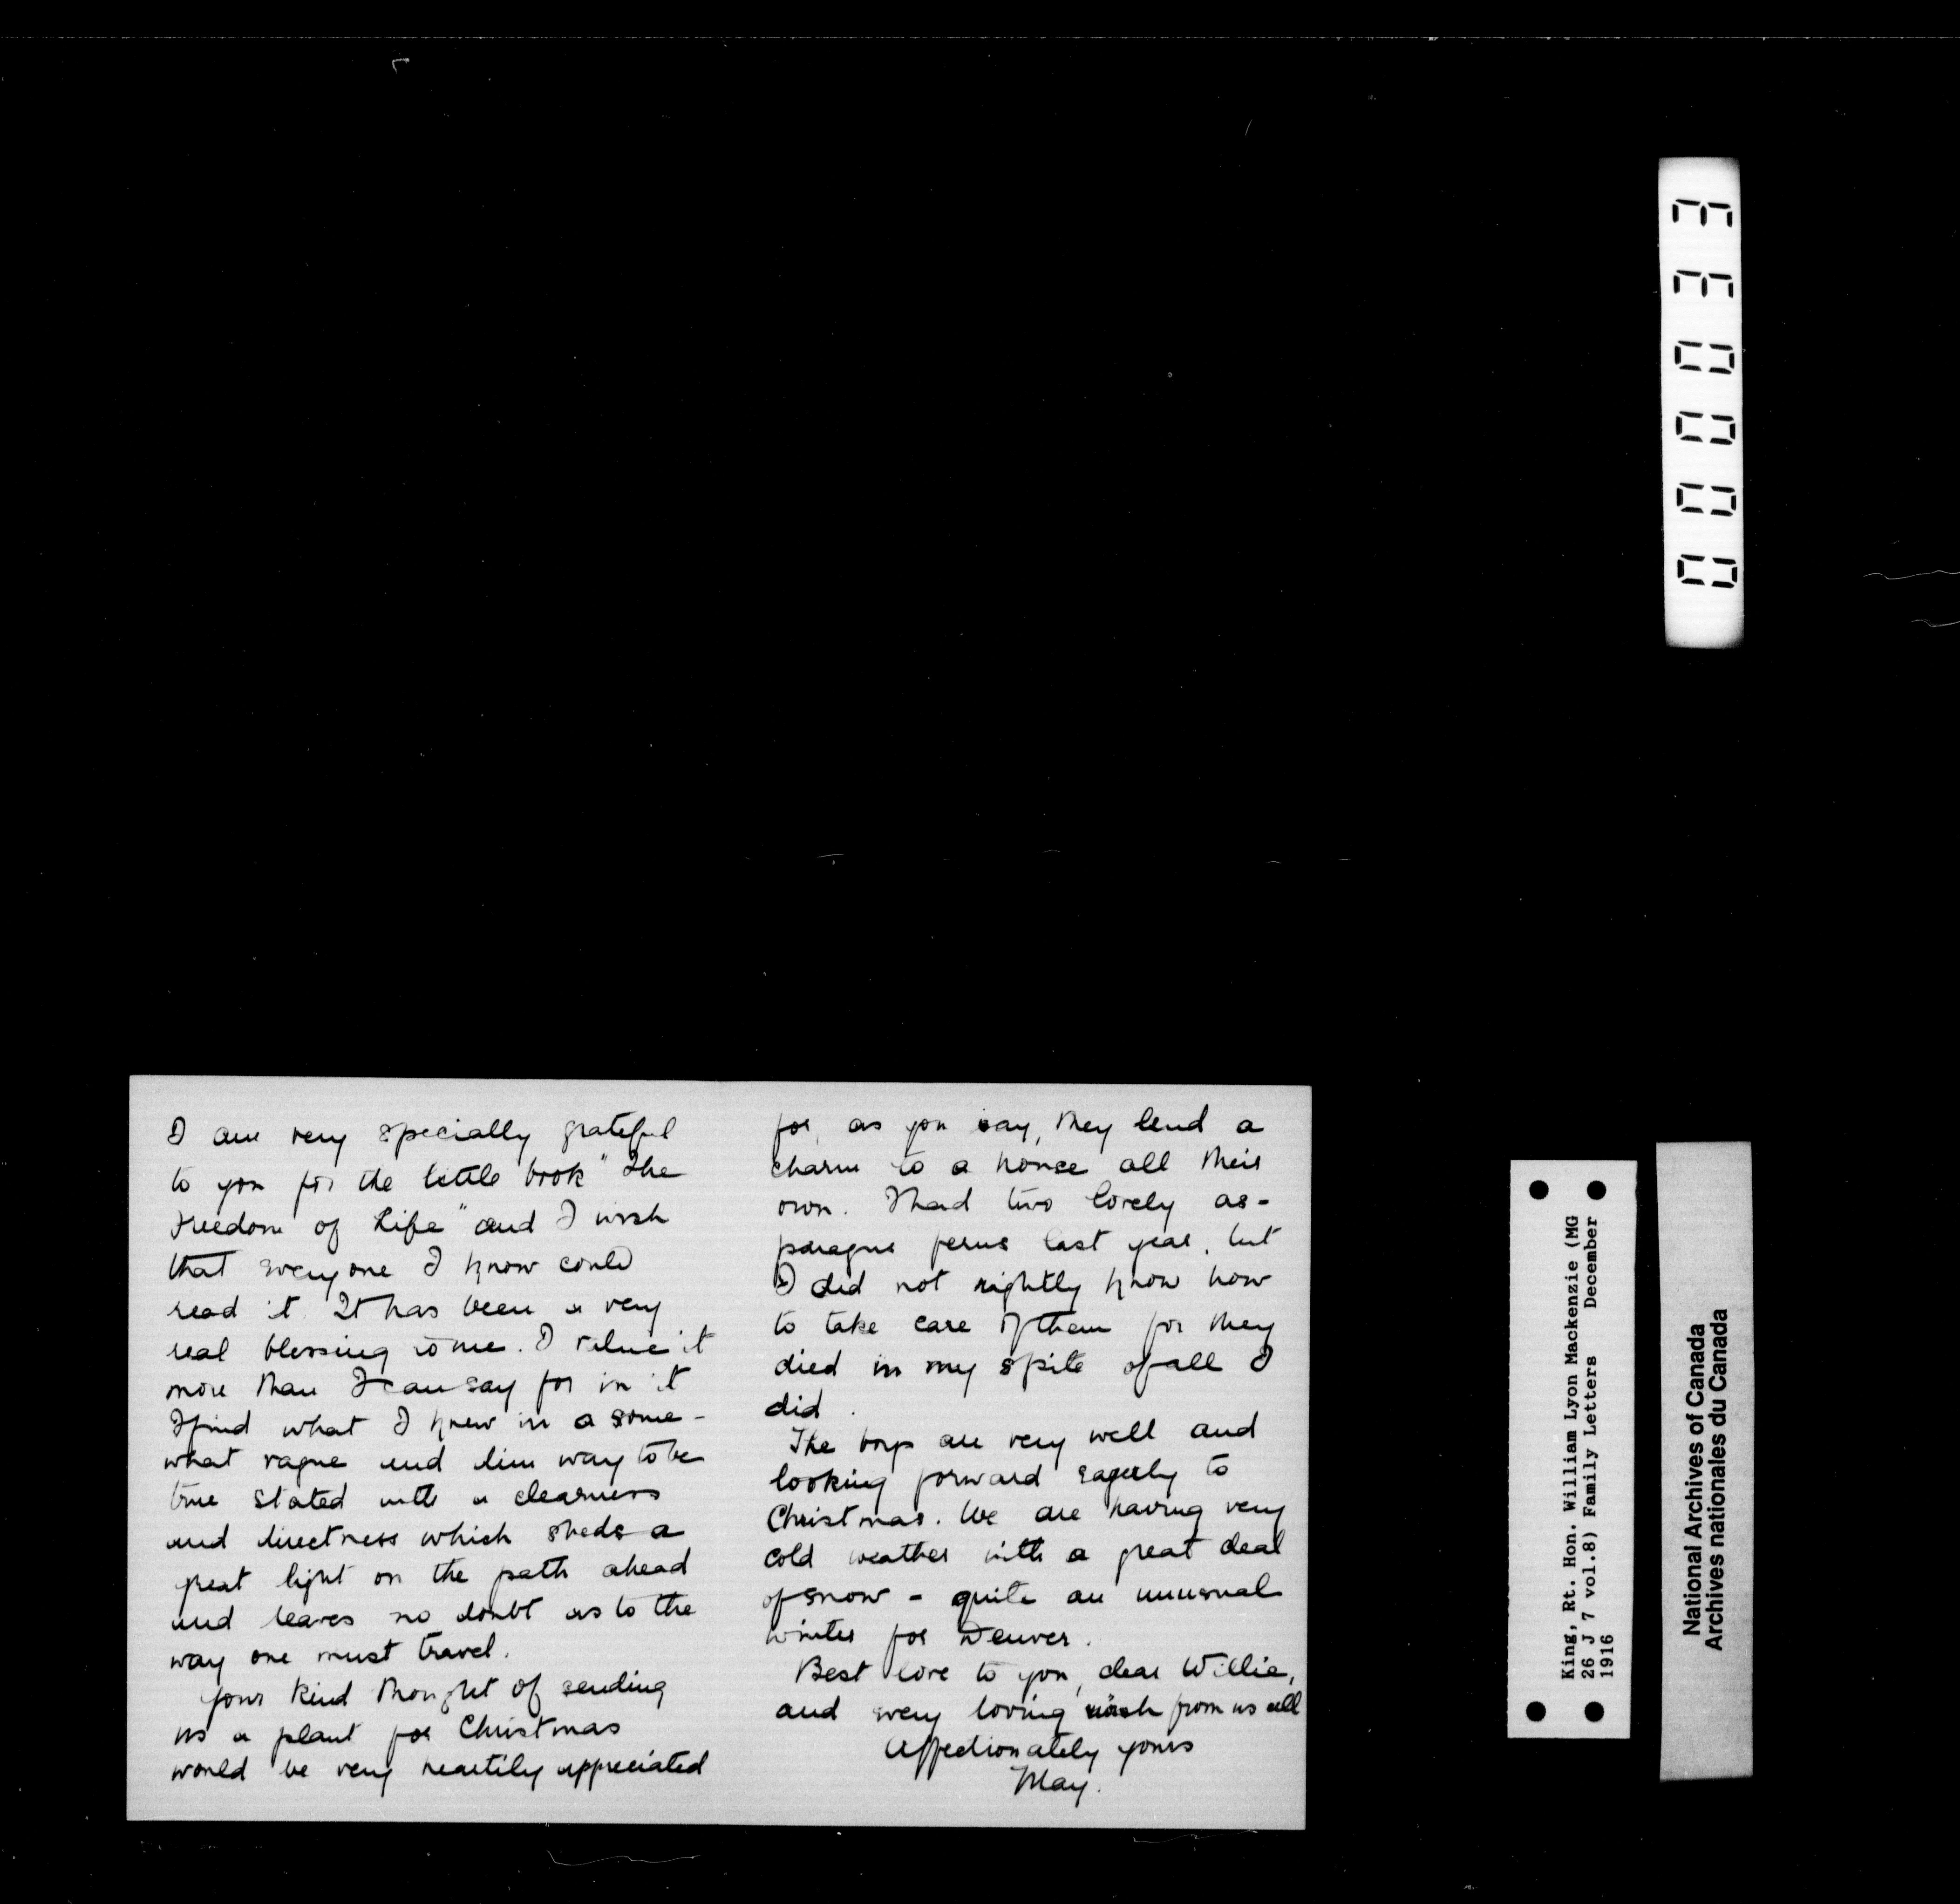 I am very specially grateful
to you for the little book "The
Freedom of Life" and I wish
that everyone I know could
read it. It has been a very
real blessing to me. I value it
more than I can say for in it
I find what I knew in a some-
what vague and dim way to be
true stated with a clearness
and directness which sheds a
great light on the path ahead
and leaves no doubt as to the
way one must travel.
Your kind thought of sending
us a plant for Christmas
would be very heartily appreciated
for, as you say, they lend a
charm to a house all their
own. I had two lovely as-
paragus ferns last year, but
I did not rightly know how
to take care of them for they
died in my spite of all I
did.
The boys are very well and
looking forward eagerly to
Christmas. We are having very
cold weather with a great deal
of snow - quite an unusual
winter for Denver.
Best love to you, dear Willie,
and every loving wish from us all
Affectionately yours
May.
King, Rt. Hon. William Lyon Mackenzie (MG
26 J 7 vol.8) Family Letters December
1916
National Archives of Canada
Archives nationales du Canada